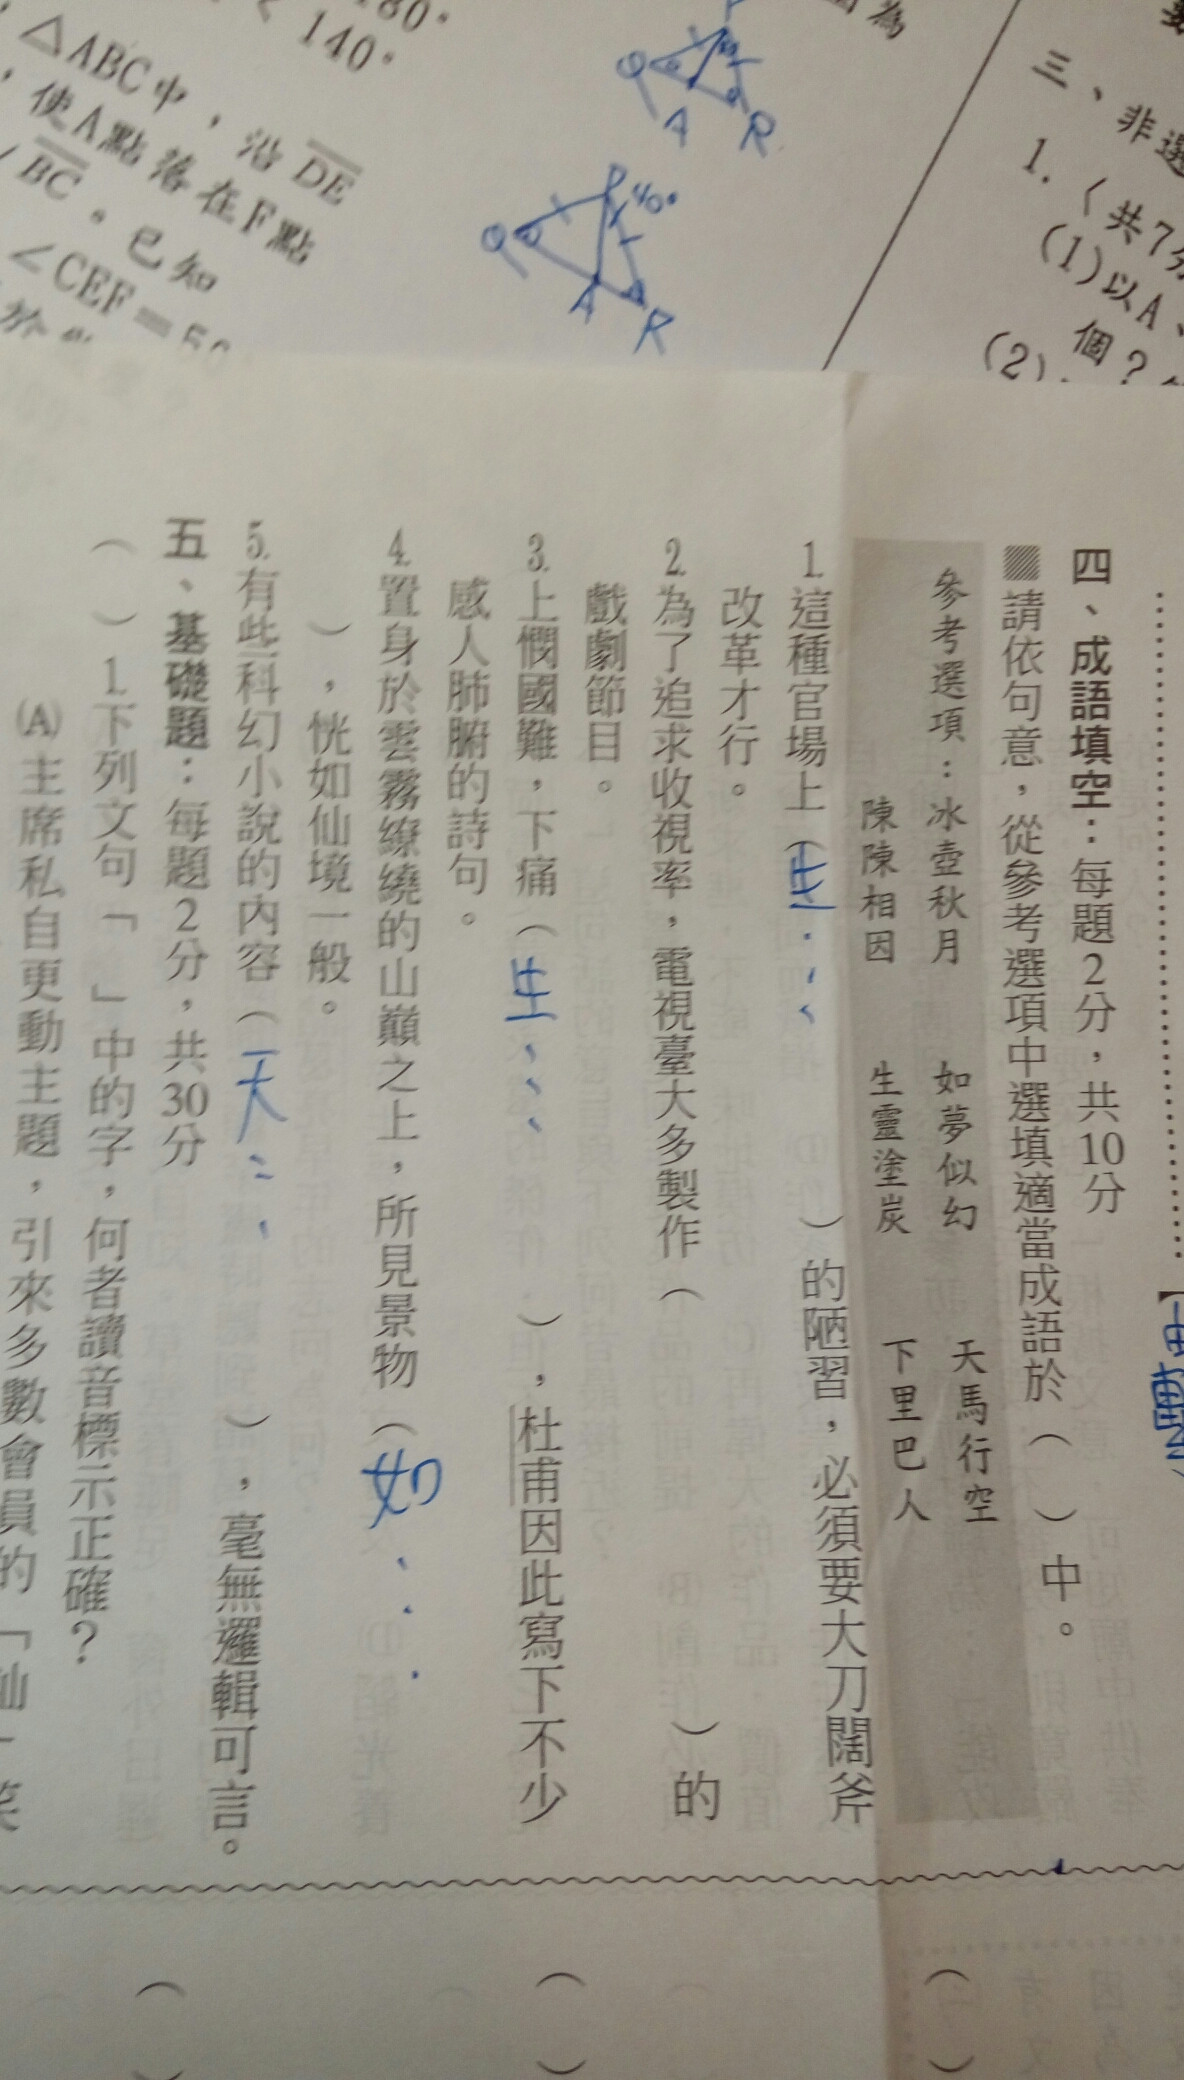 180°
140°
△ABC中，沿DE
，使A點落在F點
BC。已知
∠CEF＝50
P
Q
A
R
P
40°
Q
A
R
三、非選
1.〈共7分
(1)以A、
個？
(2)
四、成語填空：每題2分，共10分
▨請依句意，從參考選項中選填適當成語於（　）中。
參考選項：冰壺秋月　如夢似幻　天馬行空
陳陳相因　生靈塗炭　下里巴人
1.這種官場上（生...）的陋習，必須要大刀闊斧
改革才行。
2.為了追求收視率，電視臺大多製作（　）的
戲劇節目。
3.上憫國難，下痛（生、、、），杜甫因此寫下不少
感人肺腑的詩句。
4.置身於雲霧繚繞的山巔之上，所見景物（如...
），恍如仙境一般。
5.有些科幻小說的內容（天...），毫無邏輯可言。
五、基礎題：每題2分，共30分
（　）1.下列文句「　」中的字，何者讀音標示正確？
(A)主席私自更動主題，引來多數會員的「訕」笑